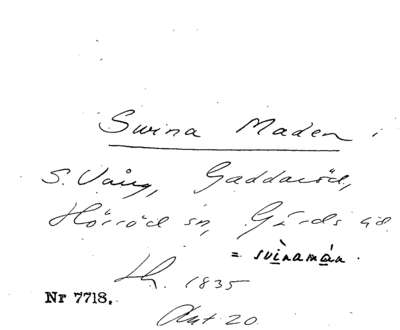 Swina Maden i
S. Vång, Gaddaröd,
Hörröd sn, Gärds hd.
= svìnamán.
Lh. 1835
Nr 7718.
Akt 20.